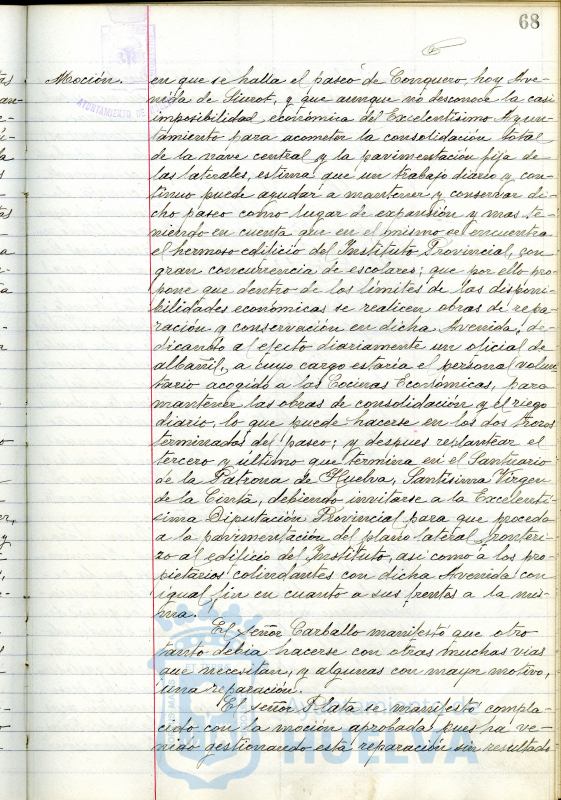 68
Moción. en que se halla el paseo de Conquero, hoy Ave-
nida de Siurot, y que aunque no desconoce la casi
imposibilidad económica del Excelentísimo Ayun-
tamiento para acometer la consolidación total
de la nave central y la pavimentación fija de
las laterales, estima que un trabajo diario y con-
tinuo puede ayudar a mantener y conservar di-
cho paseo como lugar de expansión y mas te-
niendo en cuenta que en el mismo se encuentra
el hermoso edificio del Instituto Provincial, con
gran concurrencia de escolares; que por ello pro-
pone que dentro de los límites de las disponi-
bilidades económicas se realicen obras de repa-
ración y conservación en dicha Avenida, de-
dicando a efecto diariamente un oficial de
albañil, a cuyo cargo estaría el personal volun-
tario acogido a las Cocinas Económicas, para
mantener las obras de consolidación y el riego
diario, lo que puede hacerse en los dos trozos
terminados del paseo; y despues replantear el
tercero y último que termina en el Santuario
de la Patrona de Huelva, Santísima Virgen
de la Cinta, debiendo invitarse a la Excelentí-
sima Diputación Provincial para que proceda
a la pavimentación del plano lateral fronteri-
zo al edificio del Instituto, asi como a los pro-
pietarios colindantes con dicha Avenida con
igual fin en cuanto a sus frentes a la mis-
ma.
El Señor Carballo manifestó que otro
tanto debía hacerse con otras muchas vias
que necesitan, y algunas con mayor motivo,
una reparación.
El Señor Plata se manifestó compla-
cido con la moción aprobada pues ha ve-
nido gestionando esta reparación sin resultado
AYUNTAMIENTO DE
Ayuntamiento de
HUELVA